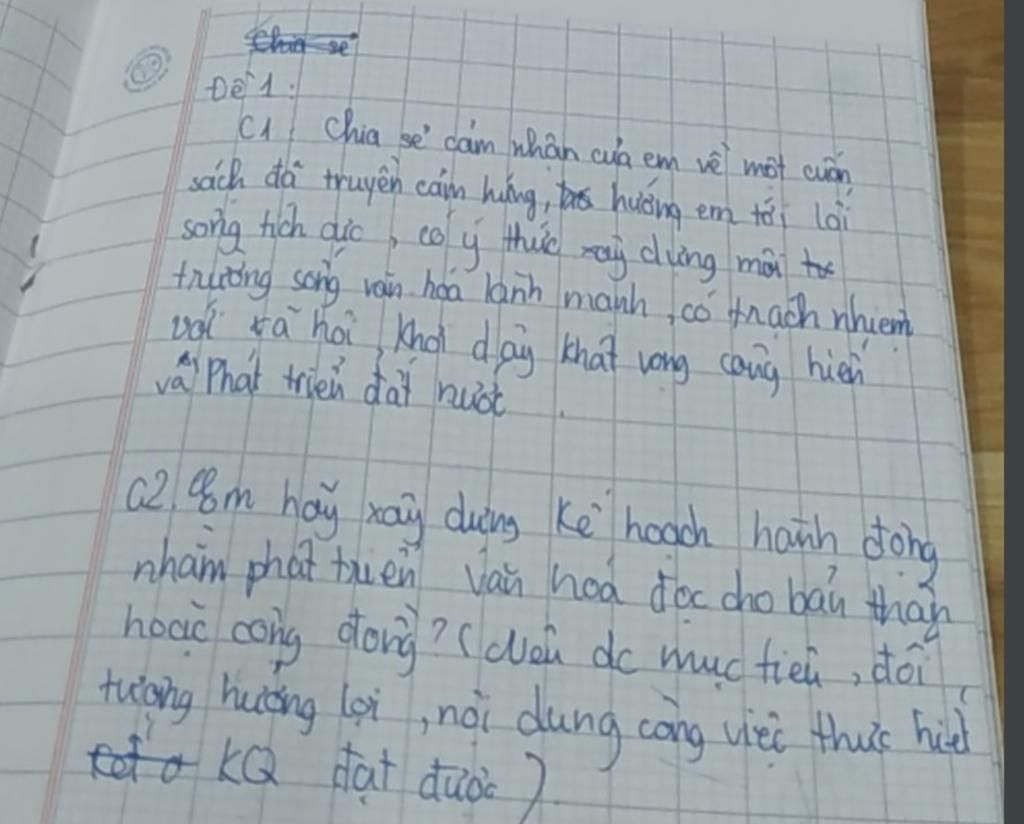 Đề 1:
C1, Chia sẻ cảm nhận của em về một cuốn
sách đã truyền cảm hứng, hướng em tới lối
sống tích cực, có ý thức xây dựng môi
trường sống văn hóa lành mạnh, có trách nhiệm
với xã hội, khơi dậy khát vọng cống hiến
và phát triển đất nước.
C2. Em hãy xây dựng kế hoạch hành động
nhằm phát triển văn hoá đọc cho bản thân
hoặc cộng đồng? (Nêu dc mục tiêu, đối
tượng hưởng lợi, nội dung công việc thực hiện
KQ đạt được)